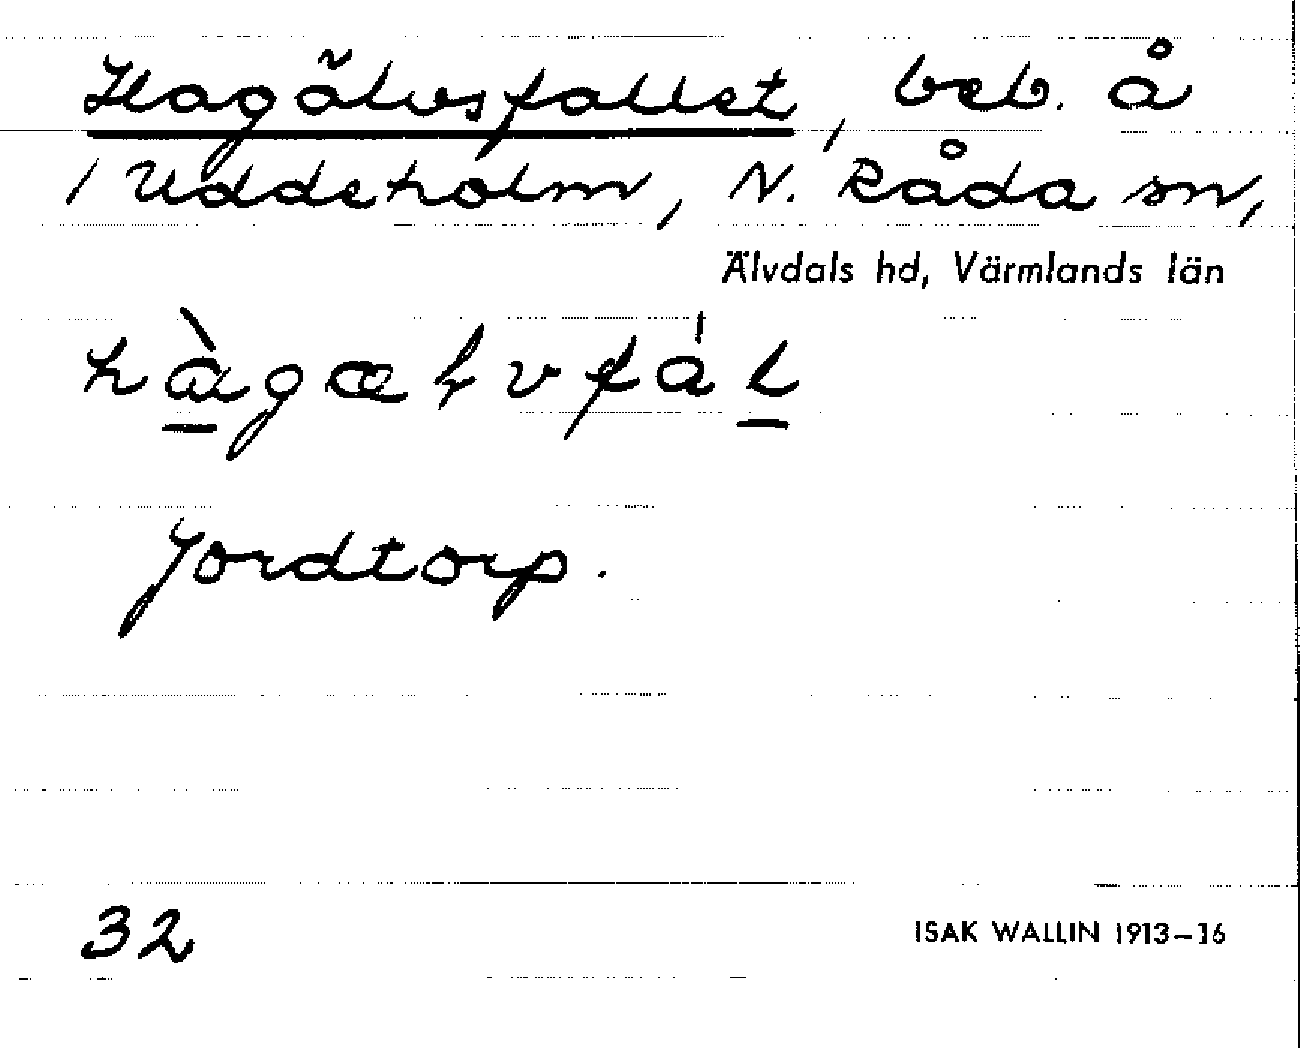 Hagälvsfallet, beb. å
/ Uddeholm, N. Råda sn,
Älvdals hd, Värmlands län
hàgæɫvfál
Jordtorp.
32
ISAK WALLIN 1913–16